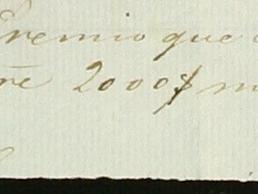 Premio que
re 2000$ m